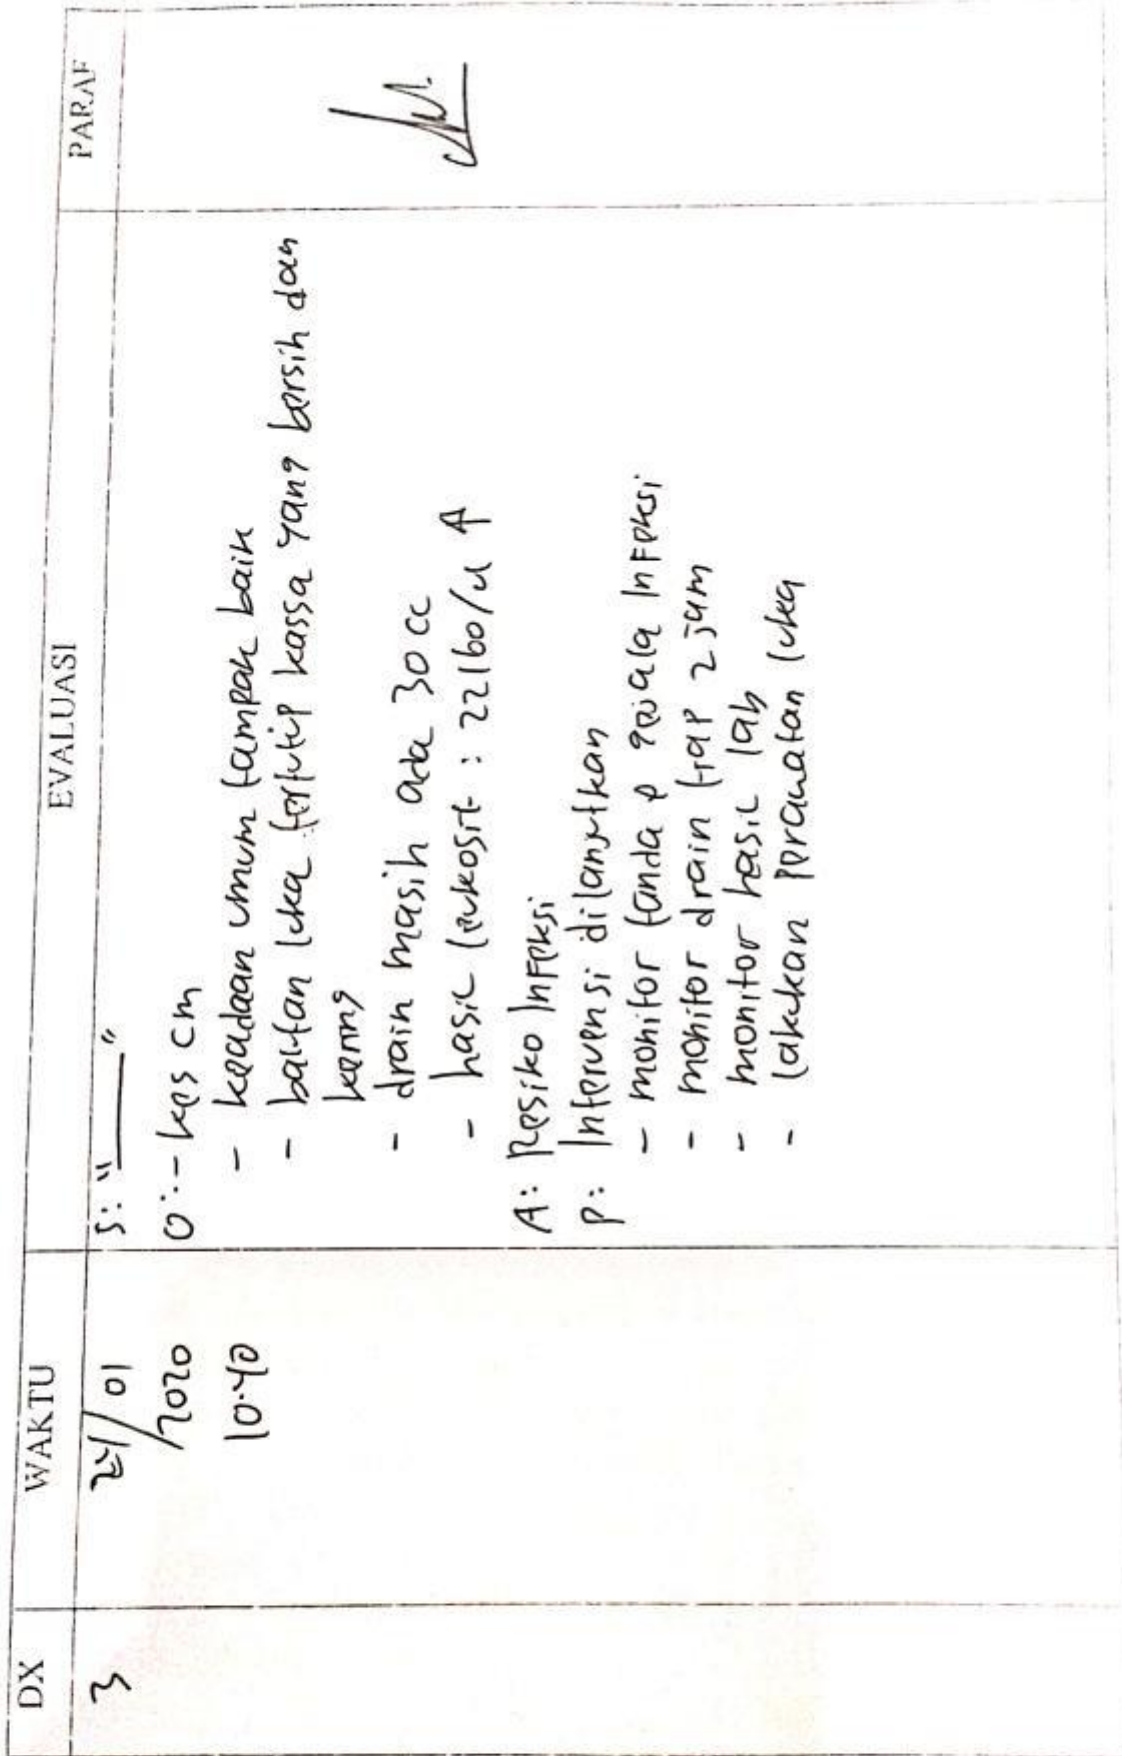 DX WAKTU EVALUASI PARAF
3 24/01 S: "——"
/2020 O: - kes cm
10.40 - keadaan umum tampak baik
- balutan luka tertutup kassa yang bersih dan
kering
- drain masih ada 30 cc
- hasil leukosit : 22160/u ↑
A: Resiko Infeksi
P: Intervensi dilanjutkan
- monitor tanda & gejala Infeksi
- monitor drain tiap 2 jam
- monitor hasil lab
- lakukan perawatan luka